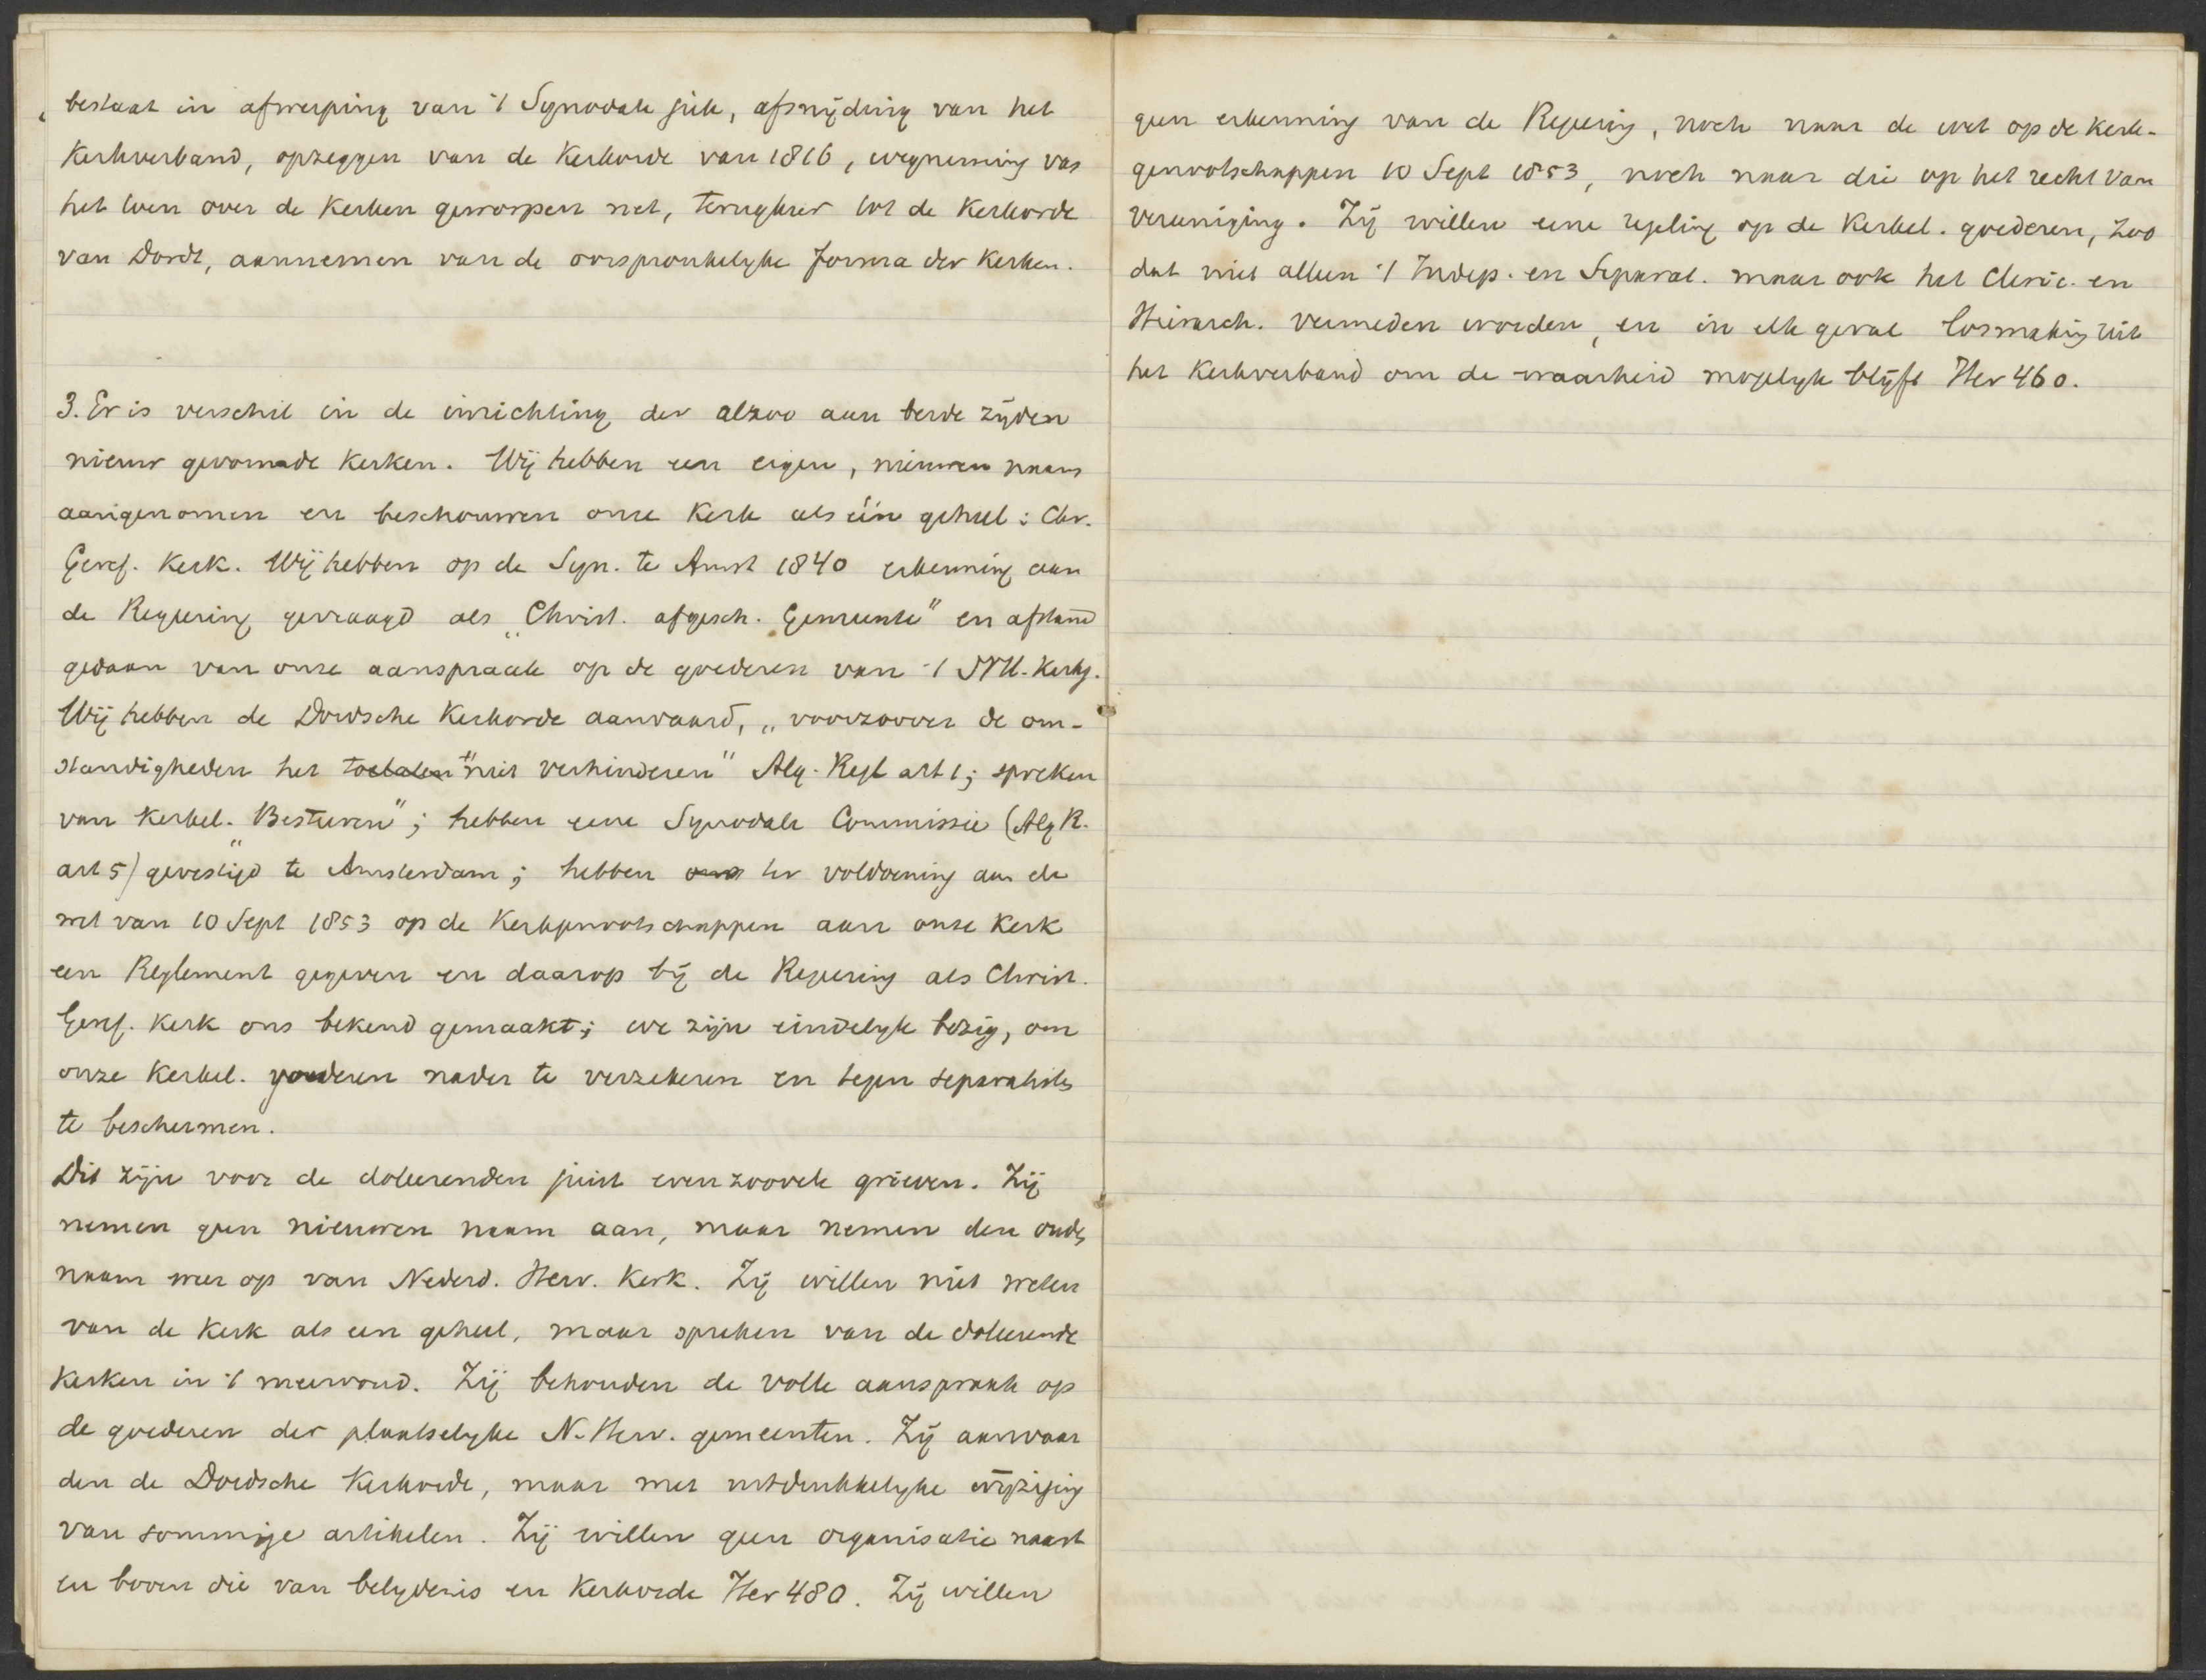 bestaat in afwerping van 't Synodale juk, afsnijding van het
Kerkverband, opzeggen van de Kerkorde van 1816, wegneming van
het over de Kerken geworpen net, terugkeer tot de Kerkorde
van Dordt, aannemen van de oorspronkelyke forma der Kerken.
3. Er is verschil in de inrichting der alzoo aan beide zijden
nieuw gevormde Kerken. Wij hebben een eigen, nieuwen naam
aangenomen en beschouwen onze Kerk als één geheel: Chr.
Geref. Kerk. Wij hebben op de Syn. te Amst 1840 erkenning aan
de Regeering gevraagd als „Christ. afgesch. Gemeente" en afstand
gedaan van onze aanspraak op de goederen van 't N.H. Kerkg.
Wij hebben de Dordsche Kerkorde aanvaard, „voorzoover de om-
standigheden het toelaten "niet verhinderen" Alg. Regl art 1; spreken
van Kerkel. „Besturen"; hebben eene Synodale Commissie (Alg R.
art 5) gevestigd te Amsterdam; hebben ons ter voldoening aan de
wet van 10 Sept 1853 op de Kerkgenootschappen aan onze Kerk
een Reglement gegeven en daarop bij de Regeering als Christ.
Geref. Kerk ons bekend gemaakt; we zijn eindelyk bezig, om
onze Kerkel. goederen nader te verzekeren en tegen separatisten
te beschermen.
Dit zijn voor de doleerenden juist even zoovele grieven. Zij
nemen geen nieuwen naam aan, maar nemen den ouden
naam weer op van Nederd. Herv. Kerk. Zij willen niet weten
van de Kerk als een geheel, maar spreken van de doleerende
Kerken in 't meervoud. Zij behouden de volle aanspraak op
de goederen der plaatselyke N. Herv. gemeenten. Zij aanvaar
den de Dordsche Kerkorde, maar met uitdrukkelyke wijziging
van sommige artikelen. Zij willen geen organisatie naast
en boven die van belydenis en Kerkorde Her 480. Zij willen
geen erkenning van de Regeering, noch naar de wet op de Kerk-
genootschappen 10 Sept 1853, noch naar die op het recht van
vereeniging. Zij willen eene regeling op de Kerkel. goederen, zoo
dat niet alleen 't Indep. en Separat. maar ook het Cleric. en
Hierarch. vermeden worden, en in elk geval losmaking uit
het Kerkverband om de waarheid mogelyk blijft Her 460.